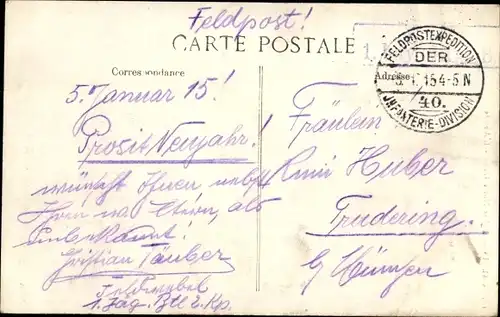 Feldpost!
CARTE POSTALE
Correspondance
Adresse
FELDPOSTEXPEDITION
DER
5.1.15 4-5 N
40.
INFANTERIE-DIVISION
5. Januar 15!
Prosit Neujahr!
wünscht Ihnen nebst
Ihren als
Unbekannt!
Christian Täuber
Feldwebel
1. Jäg. Btl 2. Kp.
Fräulein
Huber
Trudering.
b/ München